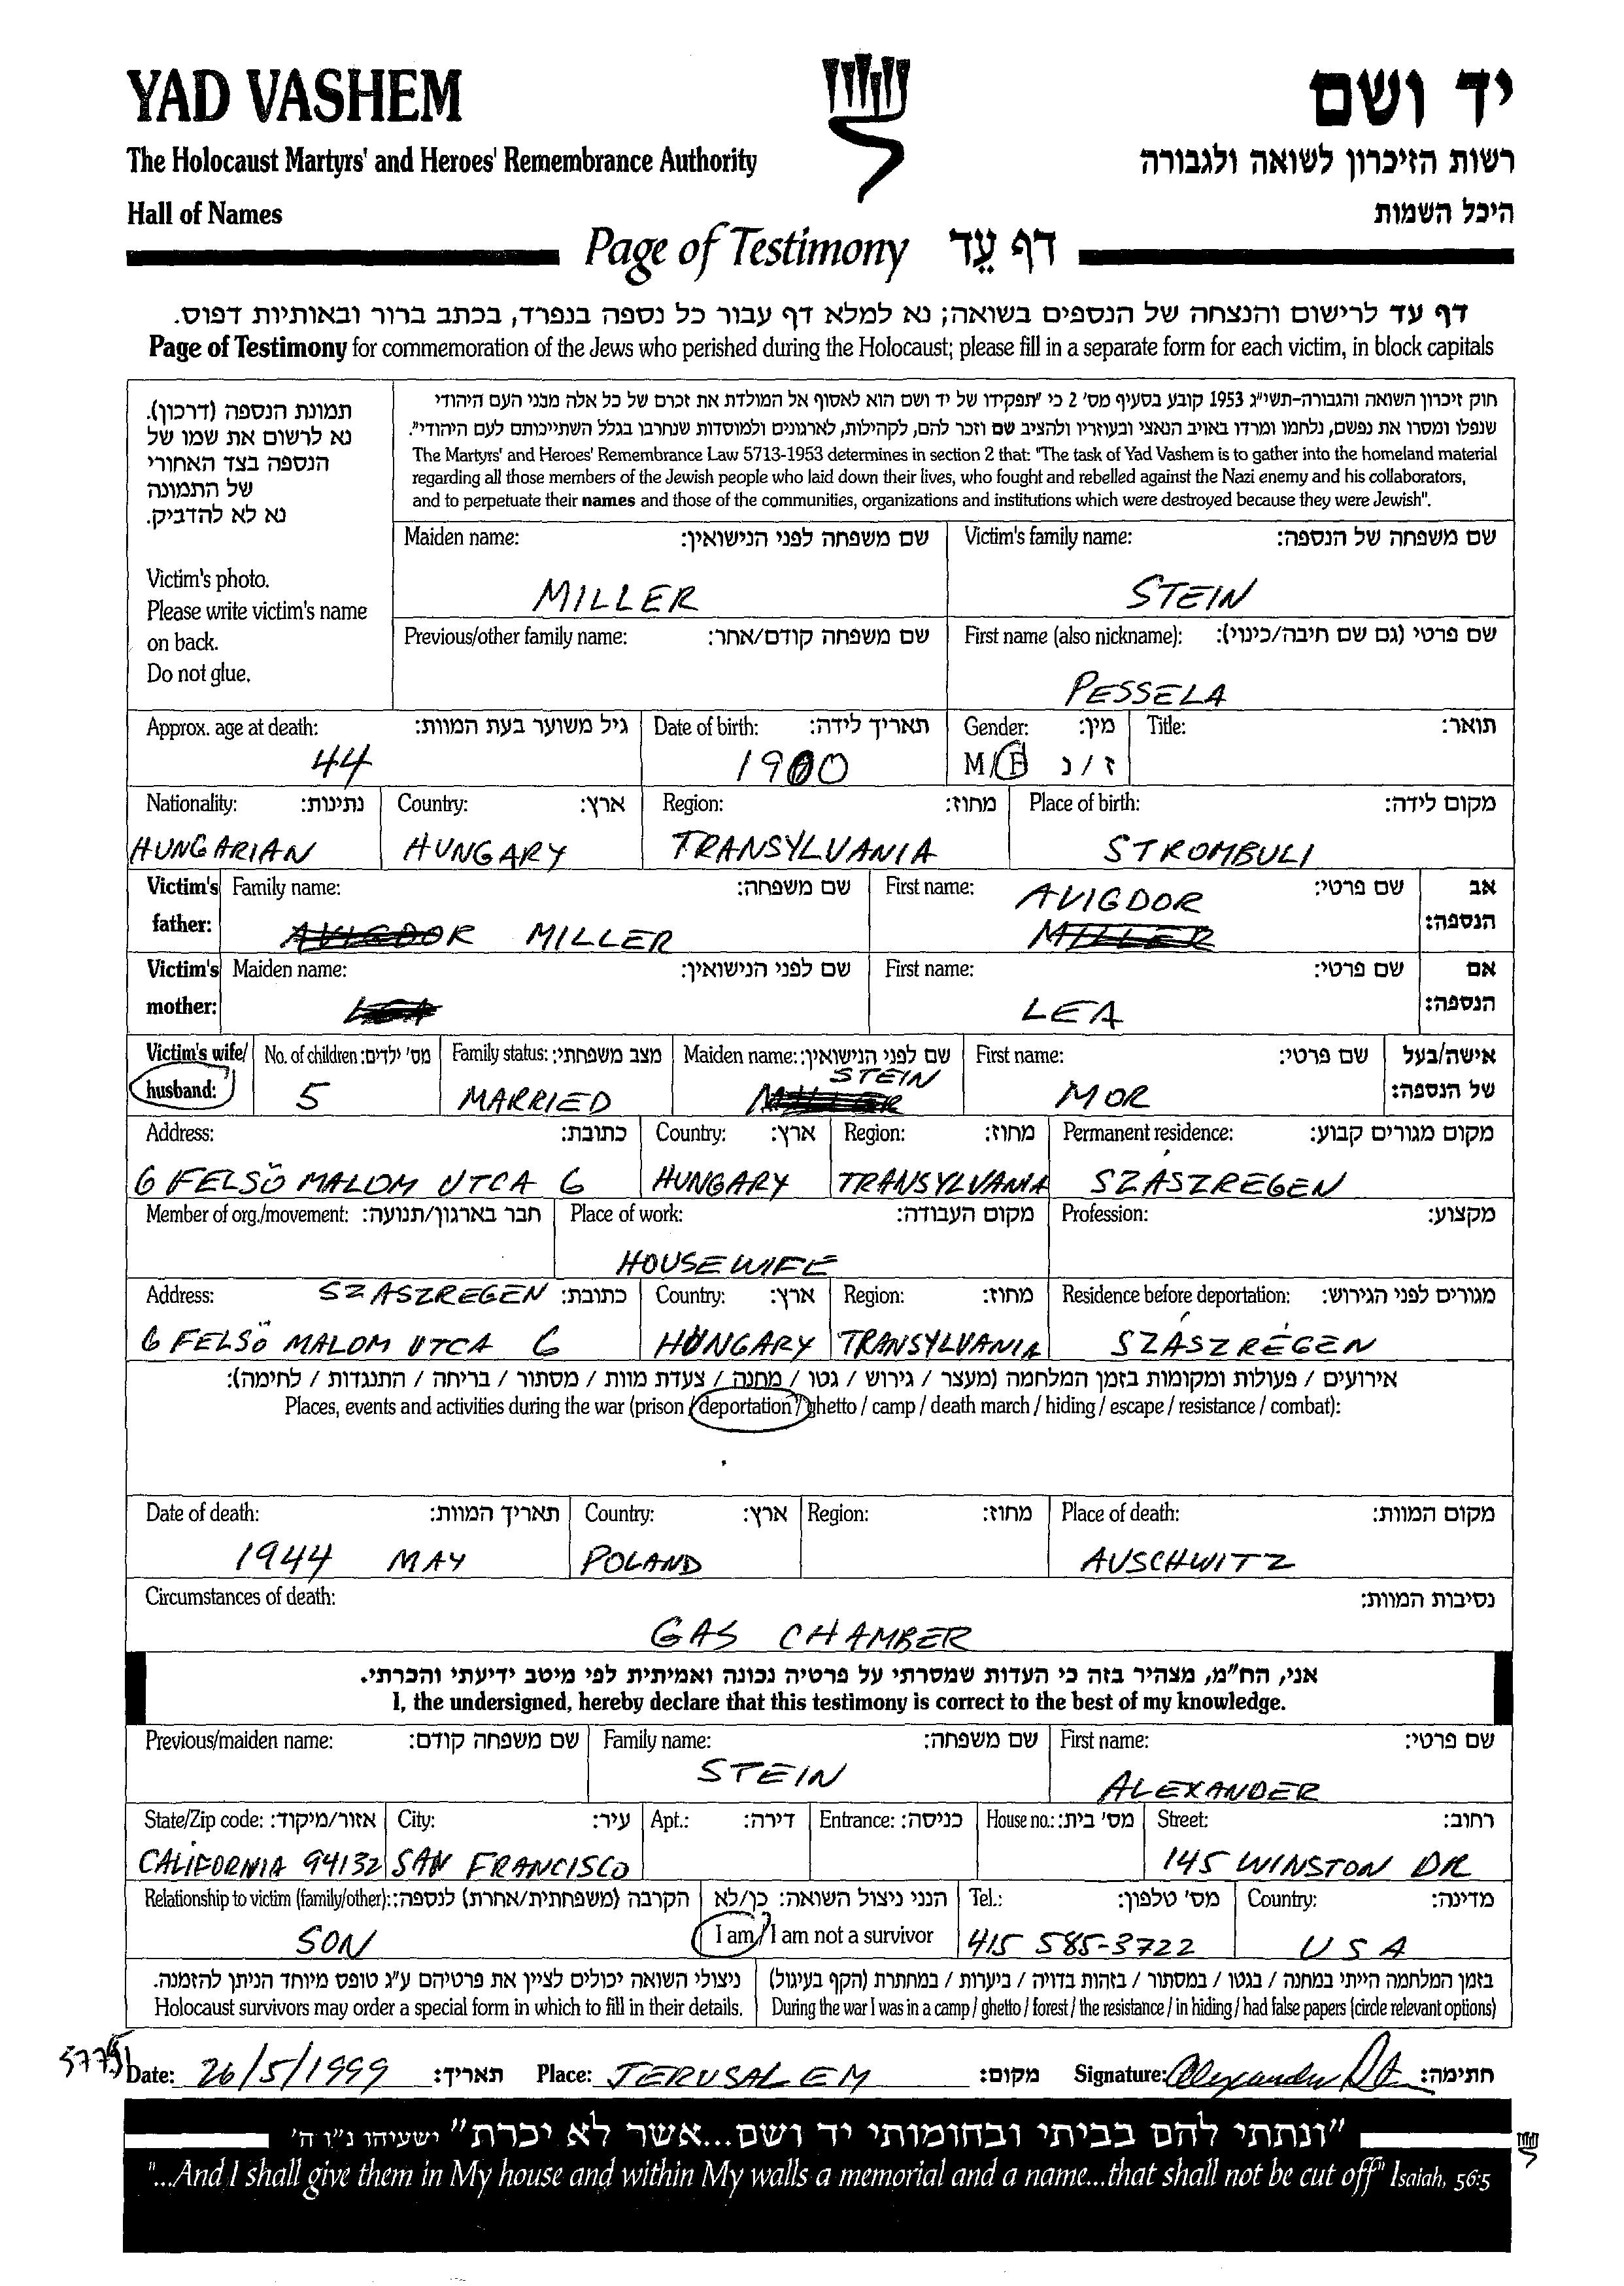 YAD VASHEM
יד ושם
The Holocaust Martyrs' and Heroes' Remembrance Authority
רשות הזיכרון לשואה ולגבורה
Hall of Names
היכל השמות
Page of Testimony דף עֵד
דף עד לרישום והנצחה של הנספים בשואה; נא למלא דף עבור כל נספה בנפרד, בכתב ברור ובאותיות דפוס.
Page of Testimony for commemoration of the Jews who perished during the Holocaust; please fill in a separate form for each victim, in block capitals
תמונת הנספה (דרכון).
נא לרשום את שמו של
הנספה בצד האחורי
של התמונה
נא לא להדביק.
Victim's photo.
Please write victim's name
on back.
Do not glue.
חוק זיכרון השואה והגבורה-תשי"ג 1953 קובע בסעיף מס' 2 כי "תפקידו של יד ושם הוא לאסוף אל המולדת את זכרם של כל אלה מבני העם היהודי
שנפלו ומסרו את נפשם, נלחמו ומרדו באויב הנאצי ובעוזריו ולהציב שם וזכר להם, לקהילות, לארגונים ולמוסדות שנחרבו בגלל השתייכותם לעם היהודי".
The Martyrs' and Heroes' Remembrance Law 5713-1953 determines in section 2 that: "The task of Yad Vashem is to gather into the homeland material
regarding all those members of the Jewish people who laid down their lives, who fought and rebelled against the Nazi enemy and his collaborators,
and to perpetuate their names and those of the communities, organizations and institutions which were destroyed because they were Jewish".
Maiden name: שם משפחה לפני הנישואין: Victim's family name: שם משפחה של הנספה:
MILLER STEIN
Previous/other family name: שם משפחה קודם/אחר: First name (also nickname): שם פרטי (גם שם חיבה/כינוי):
PESSELA
Approx. age at death: גיל משוער בעת המוות: Date of birth: תאריך לידה: Gender: מין: Title: תואר:
44 1900 M/F ז/נ
Nationality: נתינות: Country: ארץ: Region: מחוז: Place of birth: מקום לידה:
HUNGARIAN HUNGARY TRANSYLVANIA STROMBULI
Victim's father: Family name: שם משפחה: First name: שם פרטי: אב הנספה:
AVIGDOR MILLER AVIGDOR MILLER
Victim's mother: Maiden name: שם לפני הנישואין: First name: שם פרטי: אם הנספה:
LEA LEA
Victim's wife/ husband: No. of children: מס' ילדים: Family status: מצב משפחתי: Maiden name: שם לפני הנישואין: First name: שם פרטי: אישה/בעל של הנספה:
5 MARRIED STEIN MILLER MOR
Address: כתובת: Country: ארץ: Region: מחוז: Permanent residence: מקום מגורים קבוע:
6 FELSÖ MALOM UTCA 6 HUNGARY TRANSYLVANIA SZÁSZREGEN
Member of org./movement: חבר בארגון/תנועה: Place of work: מקום העבודה: Profession: מקצוע:
HOUSEWIFE
Address: SZASZREGEN כתובת: Country: ארץ: Region: מחוז: Residence before deportation: מגורים לפני הגירוש:
6 FELSÖ MALOM UTCA 6 HUNGARY TRANSYLVANIA SZÁSZRÉGEN
אירועים / פעולות ומקומות בזמן המלחמה (מעצר / גירוש / גטו / מחנה / צעדת מוות / מסתור / בריחה / התנגדות / לחימה):
Places, events and activities during the war (prison / deportation / ghetto / camp / death march / hiding / escape / resistance / combat):
Date of death: תאריך המוות: Country: ארץ: Region: מחוז: Place of death: מקום המוות:
1944 MAY POLAND AUSCHWITZ
Circumstances of death: נסיבות המוות:
GAS CHAMBER
אני, הח"מ, מצהיר בזה כי העדות שמסרתי על פרטיה נכונה ואמיתית לפי מיטב ידיעתי והכרתי.
I, the undersigned, hereby declare that this testimony is correct to the best of my knowledge.
Previous/maiden name: שם משפחה קודם: Family name: שם משפחה: First name: שם פרטי:
STEIN ALEXANDER
State/Zip code: אזור/מיקוד: City: עיר: Apt.: דירה: Entrance: כניסה: House no.: מס' בית: Street: רחוב:
CALIFORNIA 94132 SAN FRANCISCO 145 WINSTON DR
Relationship to victim (family/other): הקרבה (משפחתית/אחרת) לנספה: הנני ניצול השואה: כן/לא Tel.: מס' טלפון: Country: מדינה:
SON I am/I am not a survivor 415 585-3722 USA
ניצולי השואה יכולים לציין את פרטיהם ע"ג טופס מיוחד הניתן להזמנה. בזמן המלחמה הייתי במחנה / בגטו / במסתור / בזהות בדויה / ביערות / במחתרת (הקף בעיגול)
Holocaust survivors may order a special form in which to fill in their details. During the war I was in a camp / ghetto / forest / the resistance / in hiding / had false papers (circle relevant options)
Date: 26/5/1999 תאריך: Place: JERUSALEM מקום: Signature: Alexander חתימה:
"ונתתי להם בביתי ובחומותי יד ושם...אשר לא יכרת" ישעיהו נ"ו ה'
"...And I shall give them in My house and within My walls a memorial and a name...that shall not be cut off" Isaiah, 56:5